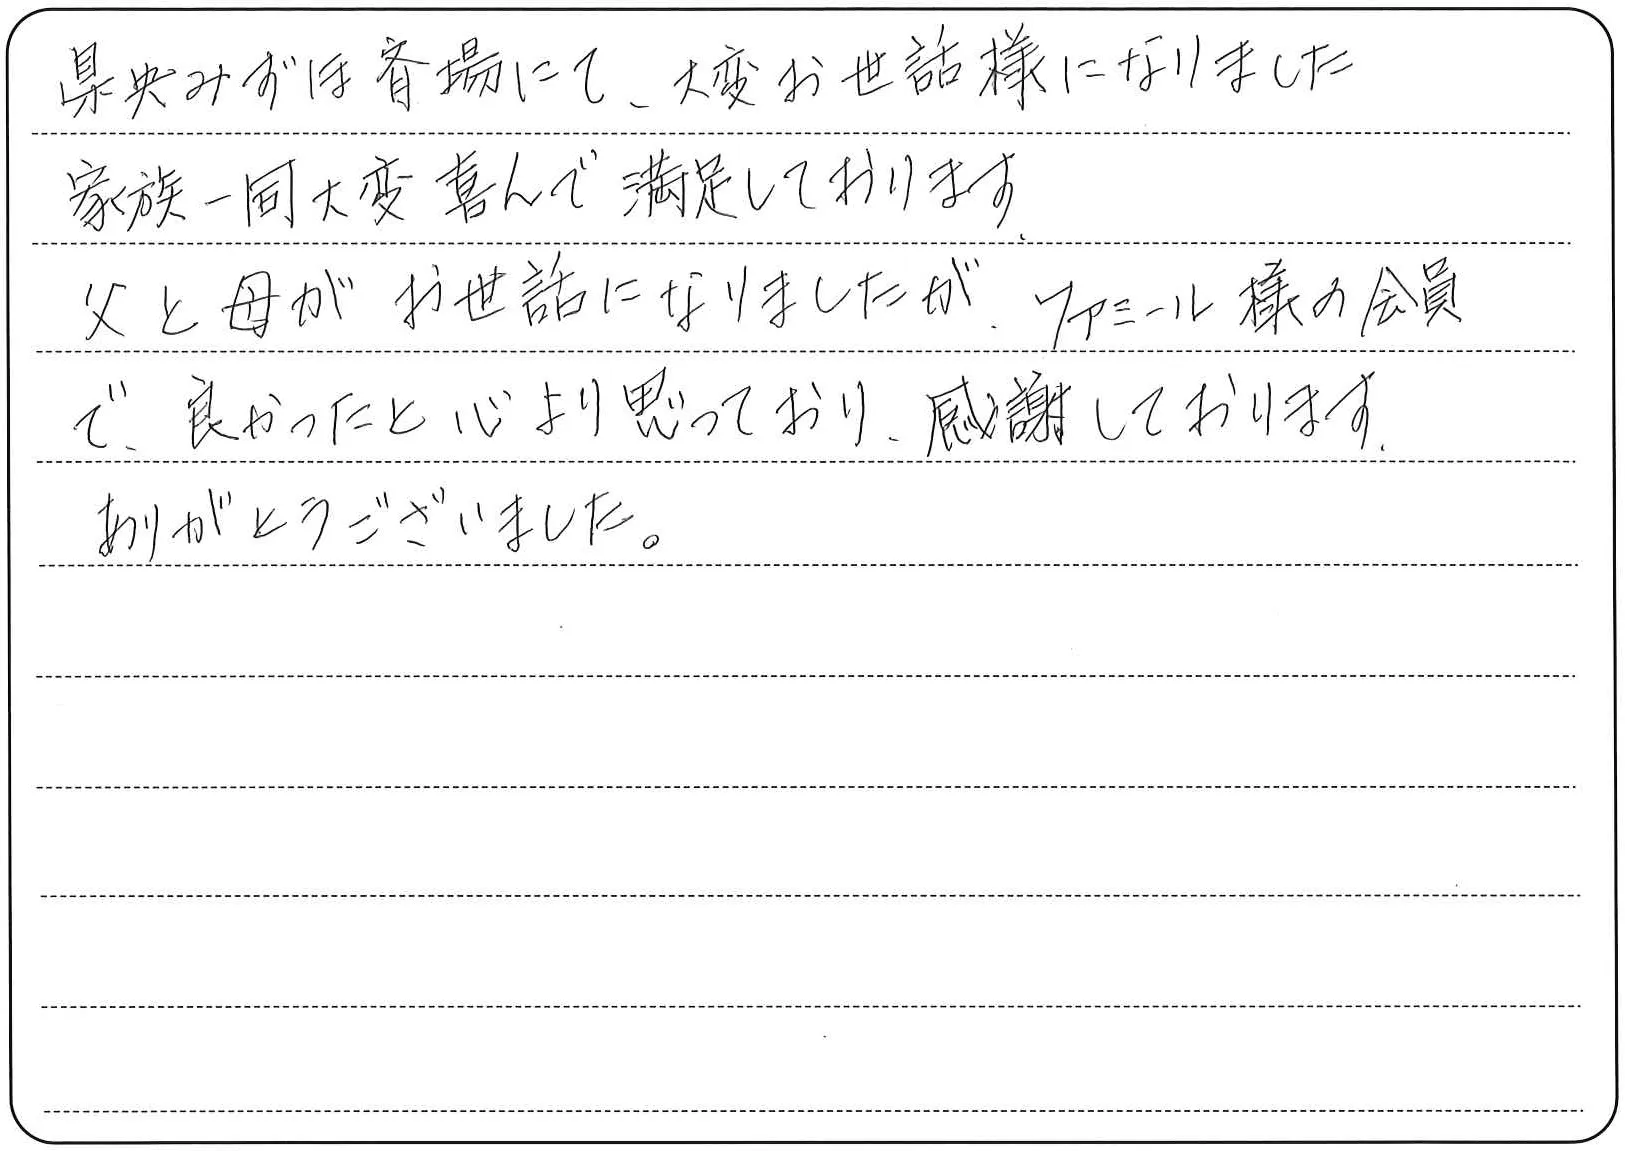 県央みずほ斉場にて、大変お世話様になりました
家族一同大変喜んで満足しております、
父と母がお世話になりましたが、ファミール様の会員
で、良かったと心より思っており、感謝しております、
ありがとうございました。